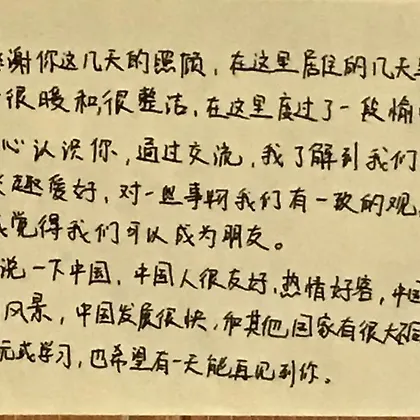 谢你这几天的照顾，在这里居住的几天
很暖和，很整洁，在这里度过了一段愉
心认识你，通过交流，我了解到我们
趣爱好，对一些事物我们有一致的观
觉得我们可以成为朋友。
说一下中国，中国人很友好，热情好客，中国
风景，中国发展很快，和其他国家有很大不同
元或学习，也希望有一天能再见到你。